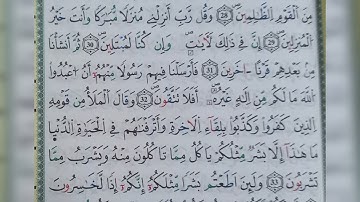 مِنَ الْقَوْمِ الظّٰلِمِيْنَ ۝28 وَقُلْ رَّبِّ اَنْزِلْنِيْ مُنْزَلًا مُّبٰرَكًا وَّاَنْتَ خَيْرُ
الْمُنْزِلِيْنَ ۝29 اِنَّ فِيْ ذٰلِكَ لَاٰيٰتٍ وَّاِنْ كُنَّا لَمُبْتَلِيْنَ ۝30 ثُمَّ اَنْشَأْنَا
مِنْۢ بَعْدِهِمْ قَرْنًا اٰخَرِيْنَ ۝31 فَاَرْسَلْنَا فِيْهِمْ رَسُوْلًا مِّنْهُمْ اَنِ اعْبُدُوا
اللّٰهَ مَا لَكُمْ مِّنْ اِلٰهٍ غَيْرُهٗ اَفَلَا تَتَّقُوْنَ ۝32 وَقَالَ الْمَلَاُ مِنْ قَوْمِهِ
الَّذِيْنَ كَفَرُوْا وَكَذَّبُوْا بِلِقَاۤءِ الْاٰخِرَةِ وَاَتْرَفْنٰهُمْ فِى الْحَيٰوةِ الدُّنْيَا
مَا هٰذَآ اِلَّا بَشَرٌ مِّثْلُكُمْ يَأْكُلُ مِمَّا تَأْكُلُوْنَ مِنْهُ وَيَشْرَبُ مِمَّا
تَشْرَبُوْنَ ۝33 وَلَىِٕنْ اَطَعْتُمْ بَشَرًا مِّثْلَكُمْ اِنَّكُمْ اِذًا لَّخٰسِرُوْنَ